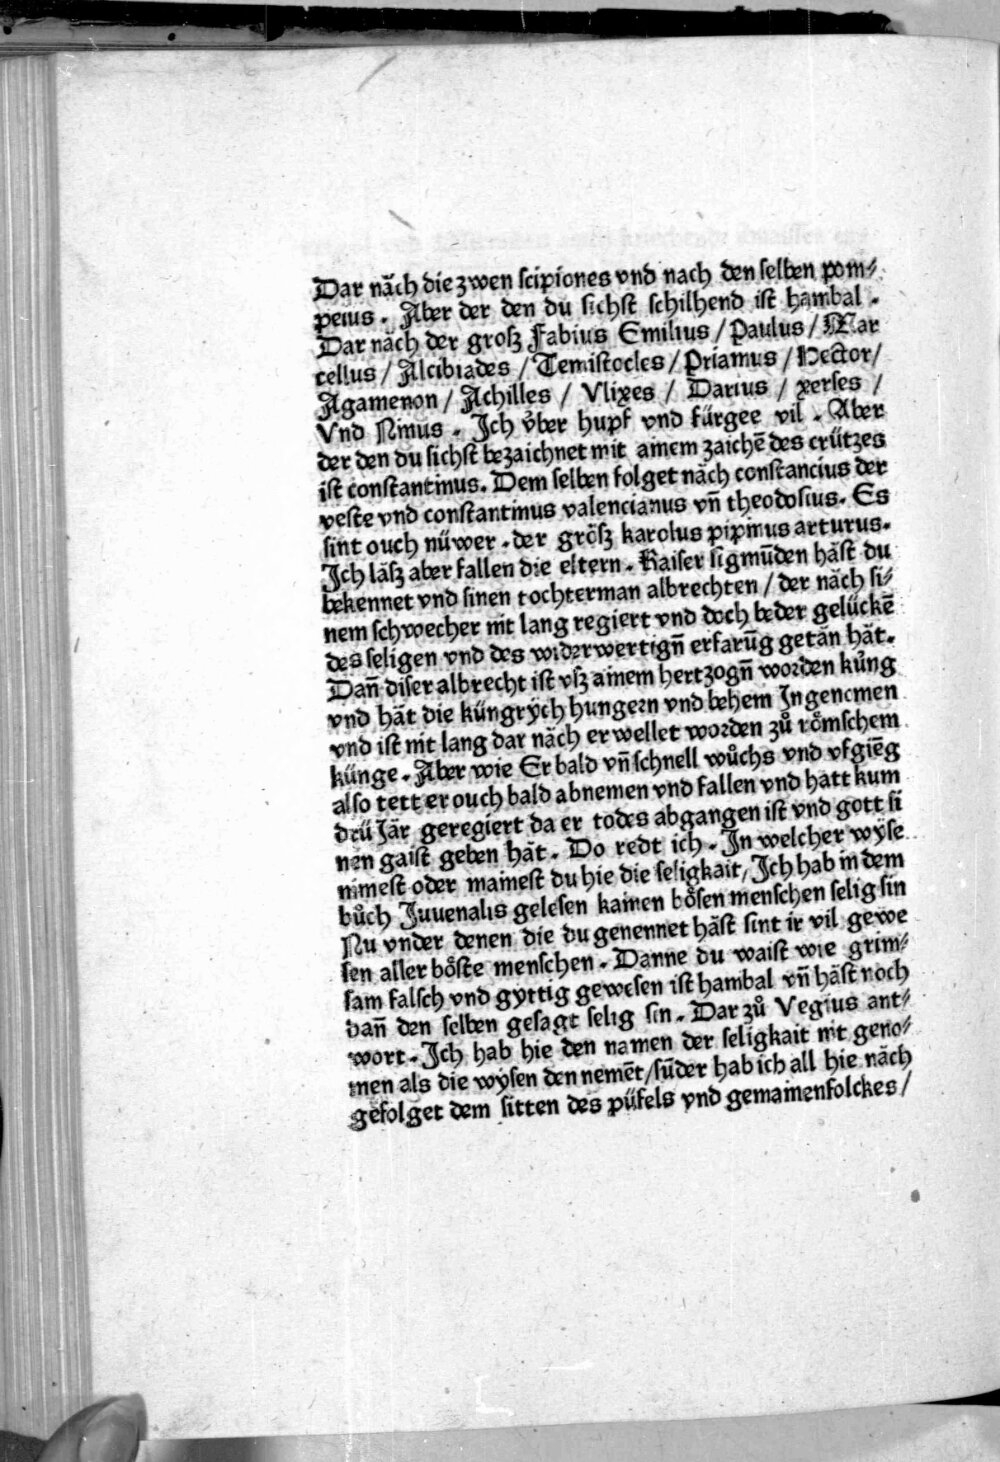 Dar nǎch die zwen scipiones vnd nach den selben pom⸗
peius . Aber der den du sichst schilhend ist hambal .
Dar nǎch der grosz Fabius Emilius / Paulus / Mar
cellus / Alcibiades / Temistocles / Priamus / Hector /
Agamenon / Achilles / Vlixes / Darius / xerses /
Vnd Ninus . Ich v̊ber hupf vnd fürgee vil . Aber
der den du sichst bezaichnet mit ainem zaichē des crützes
ist constantinus. Dem selben folget nǎch constancius der
veste vnd constantinus valencianus vn̄ theodosius. Es
sint ouch nüwer . der grǒsz karolus pipinus arturus.
Ich lǎsz aber fallen die eltern . Kaiser sigmūden hǎst du
bekennet vnd sinen tochterman albrechten / der nǎch si⸗
nem schwecher nit lang regiert vnd doch beder gelückē
des seligen vnd des widerwertign̄ erfarūg getǎn hǎt.
Dan̄ diser albrecht ist vsz ainem hertzogn̄ worden kůng
vnd hǎt die küngrÿch hungern vnd behem Ingenomen
vnd ist nit lang dar nǎch erwellet worden zů rȯmschem
künge . Aber wie Er bald vn̄ schnell wůchs vnd vfgiēg
also tett er ouch bald abnemen vnd fallen vnd hatt kum
drü Jǎr geregiert da er todes abgangen ist vnd gott si
nen gaist geben hǎt . Do redt ich . In welcher wÿse
nimest oder mainest du hie die seligkait / Ich hab in dem
bůch Juuenalis gelesen kainen bȯsen menschen selig sin
Nu vnder denen die du genennet hǎst sint ir vil gewe
sen aller bȯste menschen . Danne du waist wie grim⸗
sam falsch vnd gyttig gewesen ist hambal vn̄ hǎst noch
dan̄ den selben gesagt selig sin . Dar zů Vegius ant⸗
wort . Ich hab hie den namen der seligkait nit geno⸗
men als die wÿsen den nemēt / sūder hab ich all hie nǎch
gefolget dem sitten des püfels vnd gemainenfolckes /